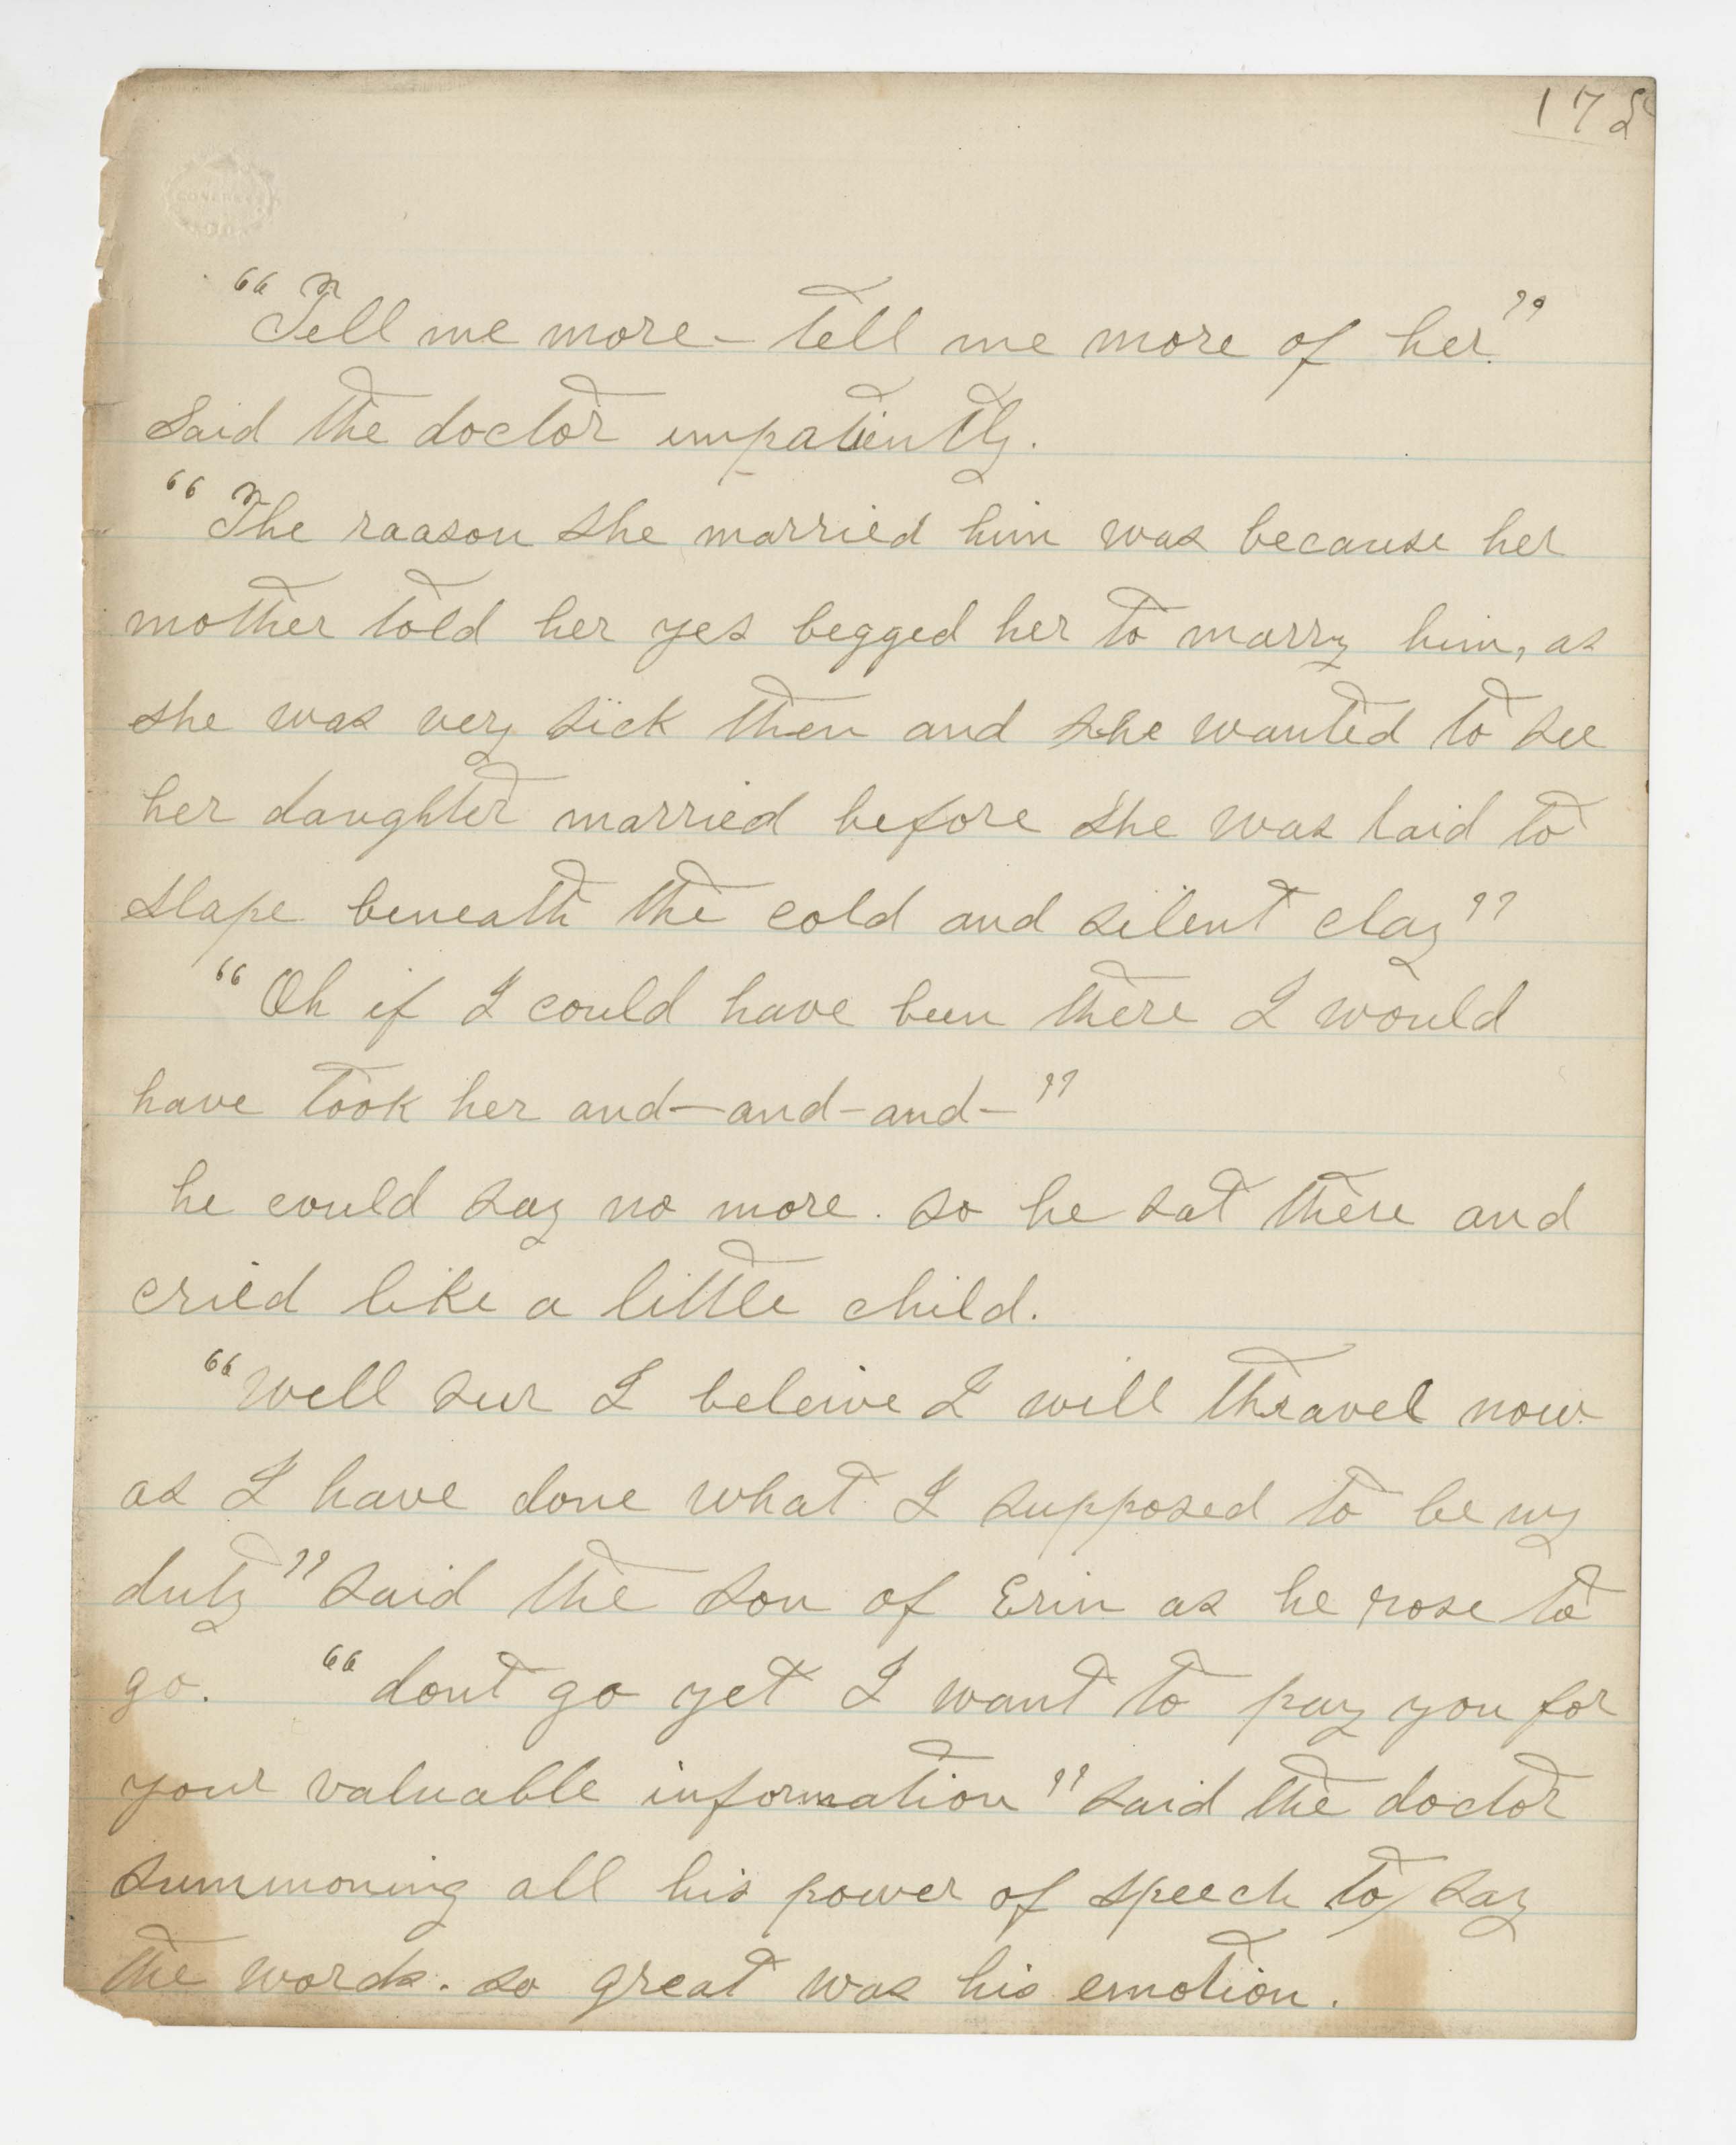 175
CONGRESS
"Tell me more – tell me more of her."
said the doctor impatiently.
"The raason she married him was because her
mother told her yes begged her to marry him, as
she was very sick then and she wanted to see
her daughter married before she was laid to
slape beneath the cold and silent clay"
"Oh if I could have been there I would
have took her and—and–and–"
he could say no more. so he sat there and
cried like a little child.
"Well sur I beleive I will thravel now
as I have done what I supposed to be my
duty" said the son of Erin as he rose to
go. "dont go yet I want to pay you for
your valuable information" said the doctor
summoning all his power of speech to say
the words. so great was his emotion.